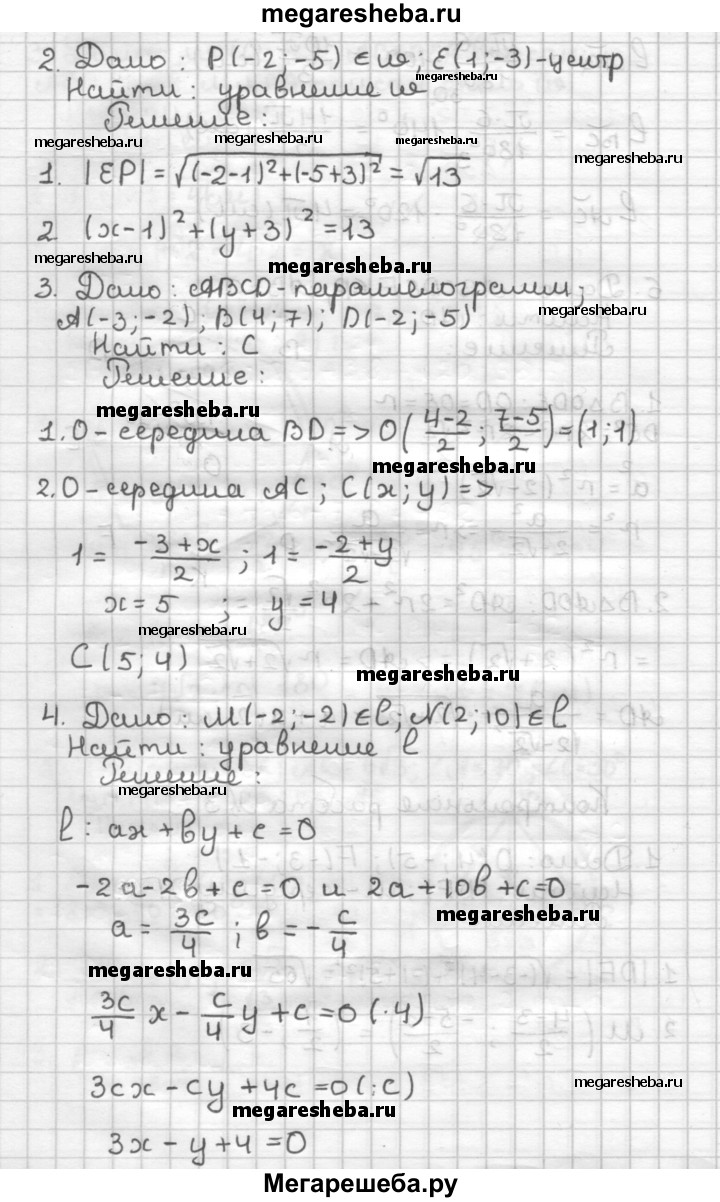 megaresheba.ru
2. Дано: P(-2;-5) ∈ ω; E(1;-3)-центр
megaresheba.ru
Найти: уравнение ω
Решение:
megaresheba.ru megaresheba.ru megaresheba.ru
megaresheba.ru
1. |EP| = √((-2-1)²+(-5+3)²) = √13
2 (x-1)²+(y+3)²=13
megaresheba.ru
megaresheba.ru
3. Дано: ABCD-параллелограмм;
A(-3;-2); B(4;7); D(-2;-5)
megaresheba.ru megaresheba.ru
Найти: C
Решение:
megaresheba.ru
1. O-середина BD => O((4-2)/2; (7-5)/2)=(1;1)
megaresheba.ru
2. O-середина AC; C(x;y)=>
1 = (-3+x)/2; 1 = (-2+y)/2
x=5 ; y=4
megaresheba.ru
C(5;4)
megaresheba.ru
4. Дано: M(-2;-2)∈l; N(2;10)∈l
Найти: уравнение l
Решение:
megaresheba.ru
l: ax+by+c=0
-2a-2b+c=0 и 2a+10b+c=0
megaresheba.ru
a = 3c/4; b = -c/4
megaresheba.ru
3c/4 x - c/4 y + c = 0 (·4)
3cx - cy + 4c = 0 (:c)
megaresheba.ru
megaresheba.ru
3x - y + 4 = 0
Мегарешеба.ру